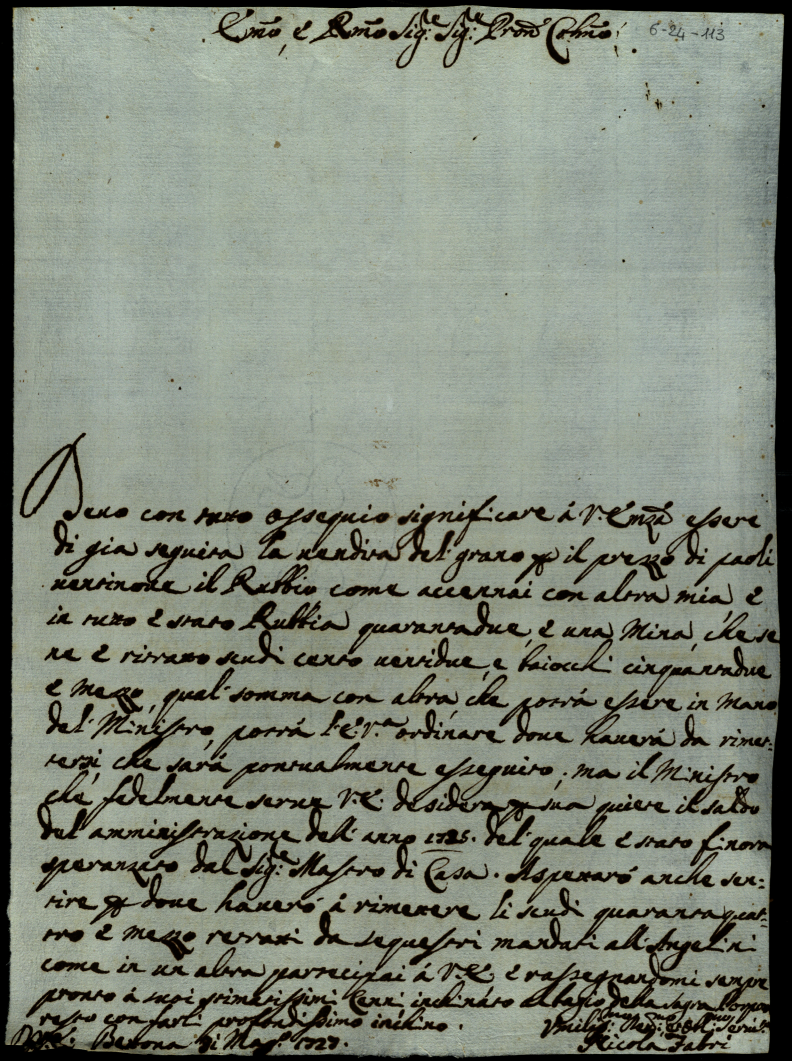 Emo, e Rmo Sig.e Sig.e Pron Colmo 6-24-113
Devo con tutto ossequio significare à V. Emza essere
di già seguita la vendita del grano p il prezzo di paoli
ventinove il Rubbio come accennai con altra mia, e
in tutto è stato Rubbia quarantadue, e una Mina, che se
ne è ritratto scudi cento ventidue, e baiocchi cinquantadue
e mezzo, qual somma con altra, che potrà essere in mano
del Ministro, potrà l'E.V.a ordinare dove haverà da rimet-
tersi, che sarà pontualmente esseguito; ma il Ministro
che fedelmente serve V.E. desidera p sua quiete il saldo
del amministrazione dell'anno 1725. del quale è stato finora
speranzato dal Sig.e Mastro di Casa. Aspettarò anche sen-
tire p dove haverò à rimettere li scudi quaranta quat-
tro e mezzo restati da sequestri mandati all'Angelini
come in un altra partecipai à V.E. e rassegnandomi sempre
pronto à suoi stimatissimi Cenni inchinato al bagio della Sagra Porpora
resto con farli profondissimo inchino.
Di V.E. 31 Mag.o
Nicola Fabri